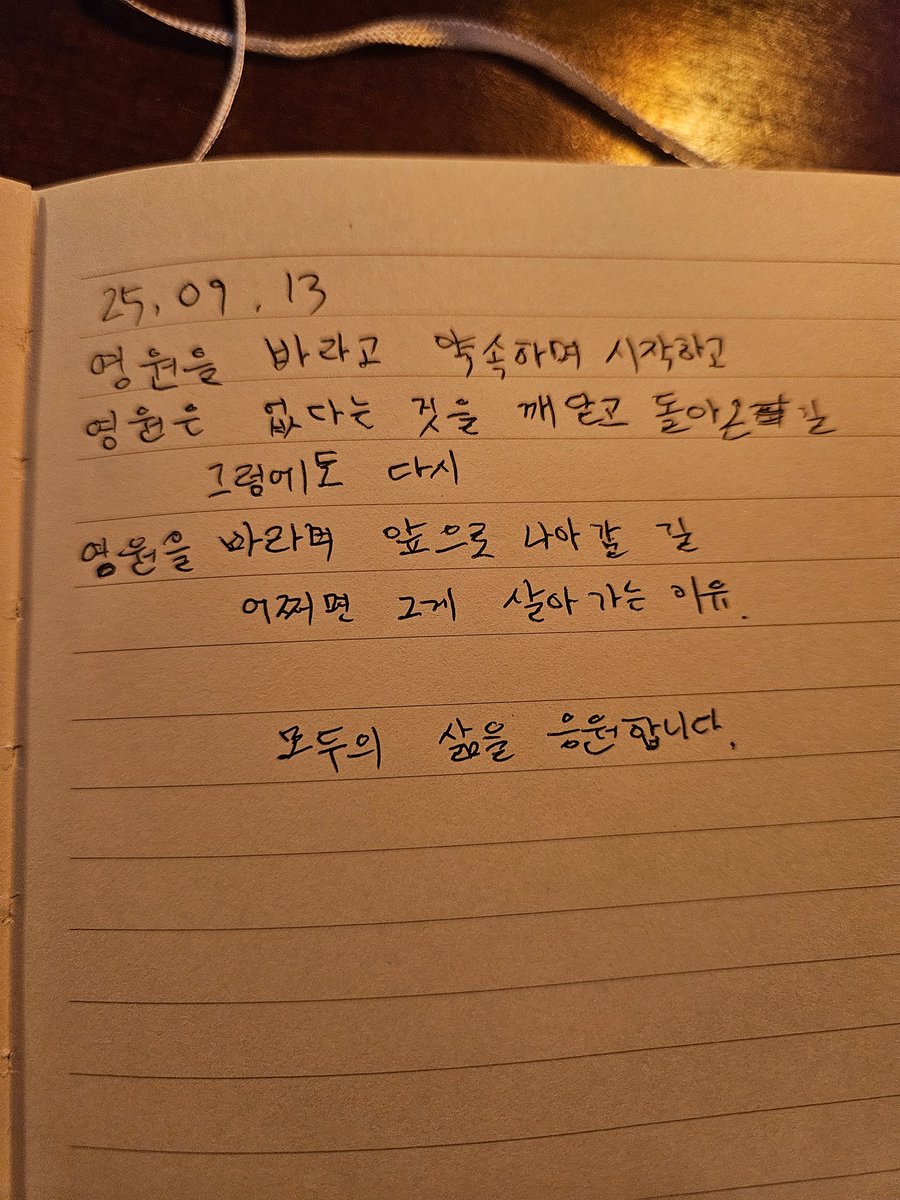 25. 09. 13
영원을 바라고 약속하며 시작하고
영원은 없다는 것을 깨닫고 돌아온 길
그럼에도 다시
영원을 바라며 앞으로 나아갈 길
어쩌면 그게 살아가는 이유.
모두의 삶을 응원합니다.